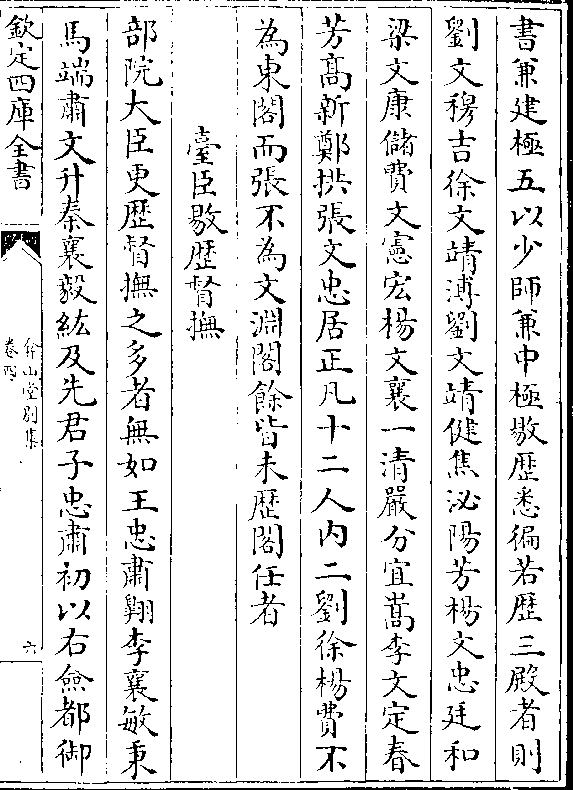 書兼建極五以少師兼中極敭歴悉徧若歴三殿者則
劉文穆吉徐文靖溥劉文靖健焦泌陽芳楊文忠廷和
梁文康儲費文憲宏楊文襄一清嚴分宜嵩李文定春
芳髙新鄭拱張文忠居正凡十二人内二劉徐楊費不
為東閣而張不為文淵閣餘皆未歴閣任者
臺臣敭歴督撫
部院大臣更歴督撫之多者無如王忠肅翺李襄敏秉
馬端肅文升秦襄毅紘及先君子忠肅初以右僉都御
欽定四庫全書
弇山堂别集
卷四
六